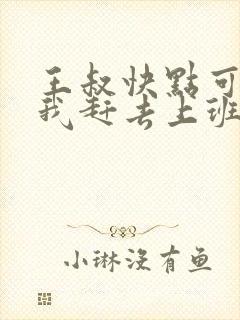 王叔快點可
我赶去上班
小琳没有鱼